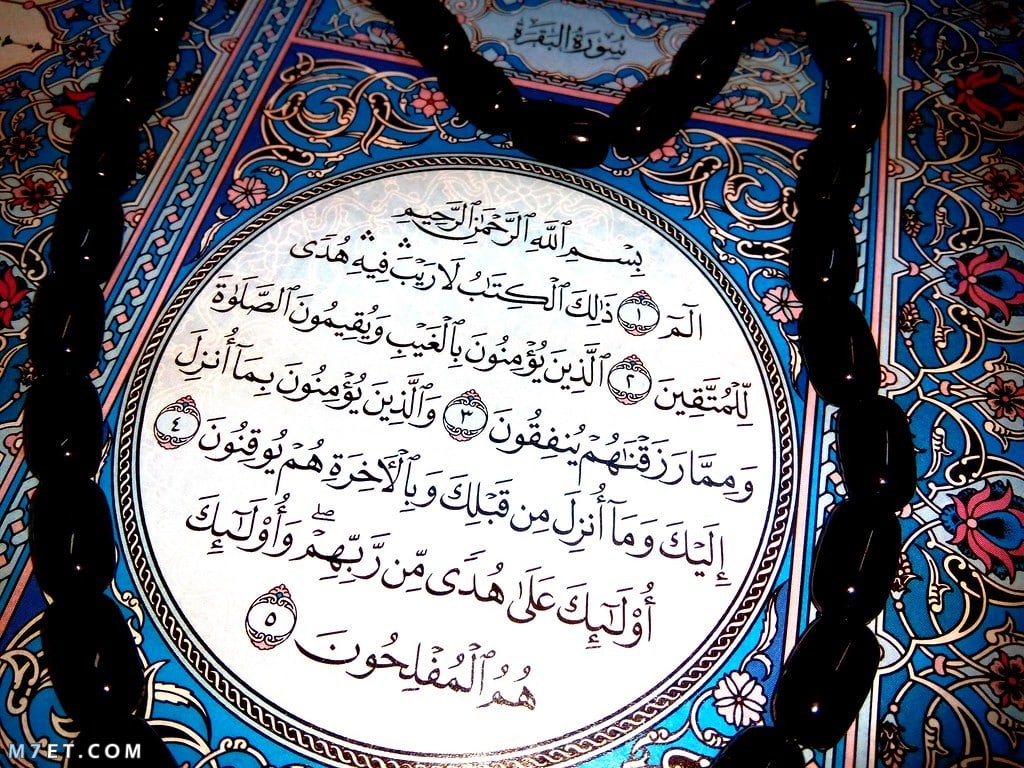 سُورَةُ البَقَرَةِ
بِسْمِ ٱللَّهِ ٱلرَّحْمَٰنِ ٱلرَّحِيمِ
الٓمٓ ١ ذَٰلِكَ ٱلْكِتَٰبُ لَا رَيْبَ ۛ فِيهِ ۛ هُدًى
لِّلْمُتَّقِينَ ٢ ٱلَّذِينَ يُؤْمِنُونَ بِٱلْغَيْبِ وَيُقِيمُونَ ٱلصَّلَوٰةَ
وَمِمَّا رَزَقْنَٰهُمْ يُنفِقُونَ ٣ وَٱلَّذِينَ يُؤْمِنُونَ بِمَآ أُنزِلَ
إِلَيْكَ وَمَآ أُنزِلَ مِن قَبْلِكَ وَبِٱلْـَٔاخِرَةِ هُمْ يُوقِنُونَ ٤
أُو۟لَٰٓئِكَ عَلَىٰ هُدًى مِّن رَّبِّهِمْ ۖ وَأُو۟لَٰٓئِكَ
هُمُ ٱلْمُفْلِحُونَ ٥
M7ET.COM